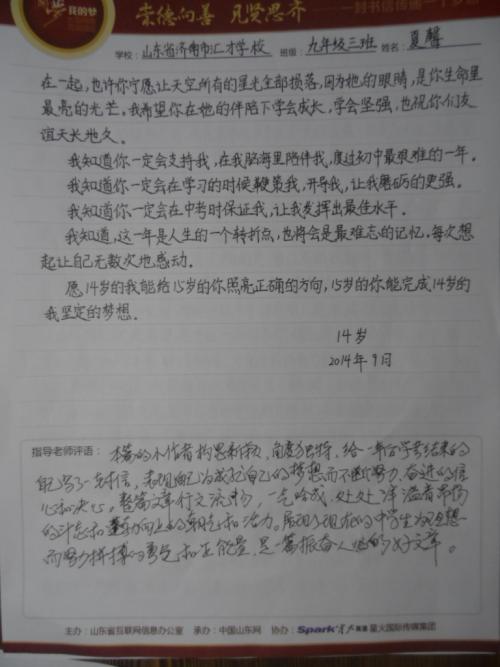 我的梦 崇德向善 见贤思齐 一封书信传递一个梦想
学校:山东省济南市汇才学校 班级:九年级三班 姓名:夏馨
在一起,也许你宁愿让天空所有的星光全部损落,因为她的眼睛,是你生命里
最亮的光芒。我希望你在她的伴陪下学会成长,学会坚强,也祝你们友
谊天长地久。
我知道你一定会支持我,在我脑海里陪伴我,度过初中最艰难的一年。
我知道你一定会在学习的时候鞭策我,开导我,让我磨砺的更强。
我知道你一定会在中考时保证我,让我发挥出最佳水平。
我知道,这一年是人生的一个转折点,也将会是最难忘的记忆,每次想
起让自己无数次地感动。
愿14岁的我能给15岁的你照亮正确的方向,15岁的你能完成14岁的
我坚定的梦想。
14岁
2014年9月
指导老师评语: 本篇的小作者构思新颖,角度独特,给一年后学考结束的
自己写了一封信,表现自己为成就自己的梦想而不断努力、奋进的信
心和决心。整篇文章行文流畅,一气哈成,处处洋溢着昂扬
的斗志和向上的朝气和活力。展现了现在的中学生为理想
而努力拼搏的勇气和正能量,是一篇振奋人心的好文章。
主办:山东省互联网信息办公室 承办:中国山东网 协办:Spark星火集团 星火国际传媒集团